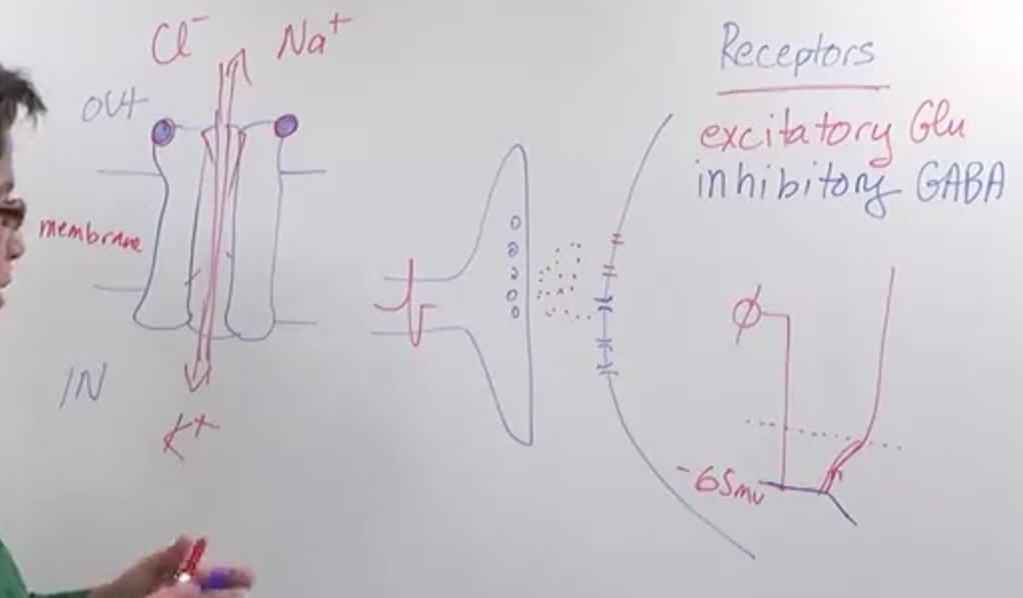 Cl⁻ Na⁺
OUT
membrane
IN
K⁺
Receptors
excitatory Glu
inhibitory GABA
Ø
-65mv